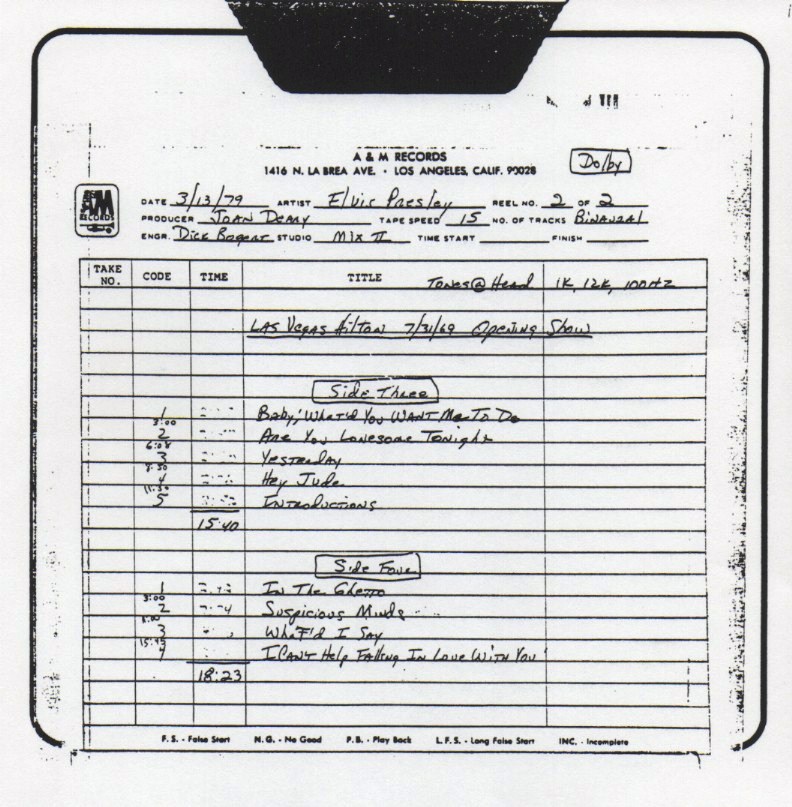 A & M RECORDS
1416 N. LA BREA AVE. • LOS ANGELES, CALIF. 90028
Dolby
DATE 3/13/79 ARTIST Elvis Presley REEL NO. 2 OF 2
PRODUCER JOAN DEARY TAPE SPEED 15 NO. OF TRACKS BINAURAL
ENGR. Dick Bogert STUDIO Mix II TIME START FINISH
TAKE NO. CODE TIME TITLE Tones @ Head 1K, 12K, 100HZ
LAS VEGAS Hilton 7/31/69 Opening Show
Side Three
1 Baby, What'd You WANT Me To Do
3:00
2 Are You Lonesome Tonight
6:08
3 Yesterday
8:50
4 Hey Jude
5 INTRODUCTIONS
15:40
Side Four
1 In The Ghetto
3:00
2 Suspicious Minds
3 What'd I Say
4 I CAN'T Help Falling In Love With You
18:23
F. S. - False Start N. G. - No Good P. B. - Play Back L. F. S. - Long False Start INC. - Incomplete